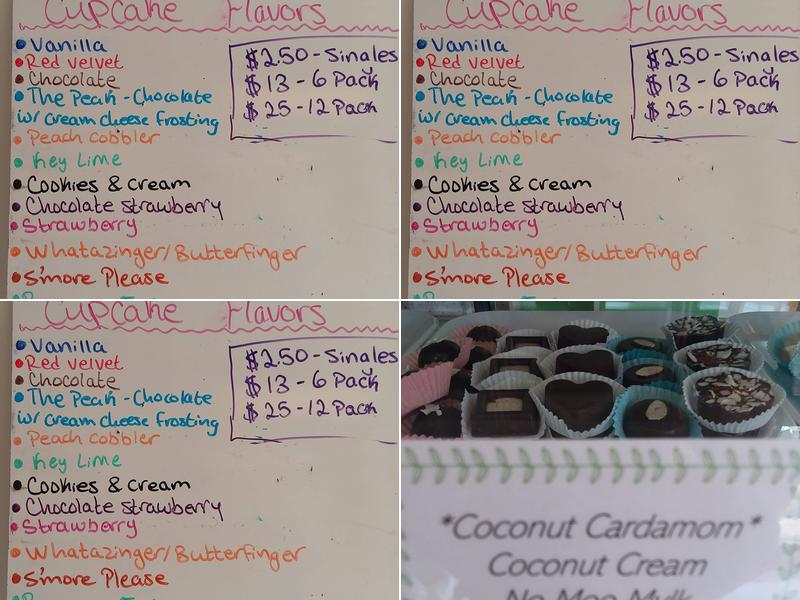 Cupcake Flavors
Vanilla
Red velvet
Chocolate
The Peak - Chocolate
w/ cream cheese frosting
Peach cobbler
Key Lime
Cookies & cream
Chocolate strawberry
Strawberry
Whatazinger/Butterfinger
S'more Please
$2.50 - Singles
$13 - 6 Pack
$25 - 12 Pack
Cupcake Flavors
Vanilla
Red velvet
Chocolate
The Peak - Chocolate
w/ cream cheese frosting
Peach cobbler
Key Lime
Cookies & cream
Chocolate strawberry
Strawberry
Whatazinger/Butterfinger
S'more Please
$2.50 - Singles
$13 - 6 Pack
$25 - 12 Pack
Cupcake Flavors
Vanilla
Red velvet
Chocolate
The Peak - Chocolate
w/ cream cheese frosting
Peach cobbler
Key Lime
Cookies & cream
Chocolate strawberry
Strawberry
Whatazinger/Butterfinger
S'more Please
$2.50 - Singles
$13 - 6 Pack
$25 - 12 Pack
*Coconut Cardamom*
Coconut Cream
No Moo Mylk